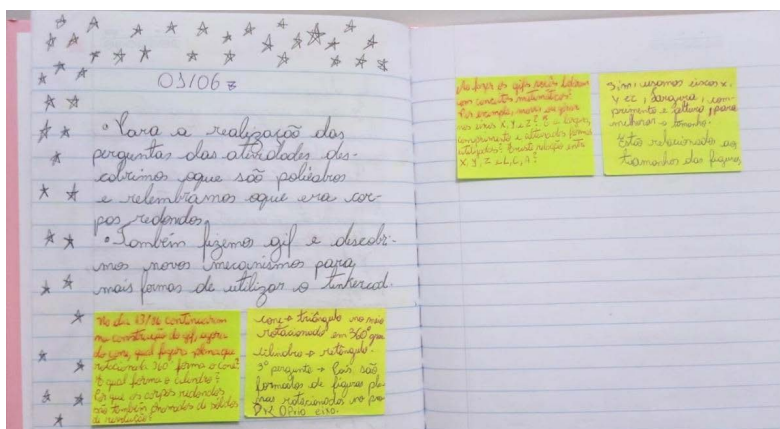 03/06
• Para a realização das
perguntas das atividades des-
cobrimos oque são poliedros
e relembramos oque era cor-
pos redondos.
• Também fizemos gif e descobri-
mos novos mecanismos para
mais formas de utilizar o tinkercad.
No dia 17/06 continuaram
na construção do gif, agora
do cone, qual figura plana que
rotacionada 360° forma o cone?
E qual forma o cilindro?
Por que os corpos redondos
são também chamados de sólidos
de revolução?
cone → triângulo no meio
rotacionado em 360° graus
cilindro → retângulo
3° pergunta → Pois são
formados de figuras pla-
nas rotacionados no pró
prio eixo.
Ao fazer os gifs vocês
com conceitos matemáticos?
Por exemplo, mover ou girar
nos eixos X, Y e Z? E a largura,
comprimento e altura
utilizados? Existe relação entre
X, Y, Z e L, C, A?
Sim, usamos eixos x,
y e z, largura, com-
primento e altura, para
melhorar o tamanho.
Estão relacionados aos
tamanhos das figuras